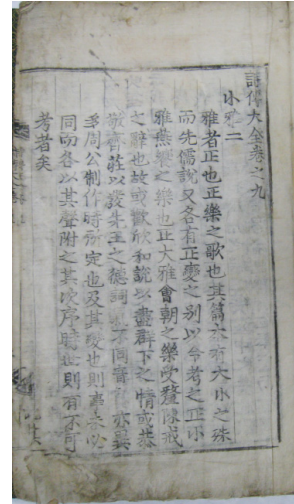 詩傳大全卷之九
小雅二
雅者正也正樂之歌也其篇本有大小之殊
而先儒說又各有正變之別以今考之正小
雅燕饗之樂也正大雅會朝之樂受釐陳戒
之辭也故或歡欣和說以盡群下之情或恭
敬齊莊以發先王之德詞氣不同音節亦異
多周公制作時所定也及其變也則事未必
同而各以其聲附之其次序時世則有不可
考者矣